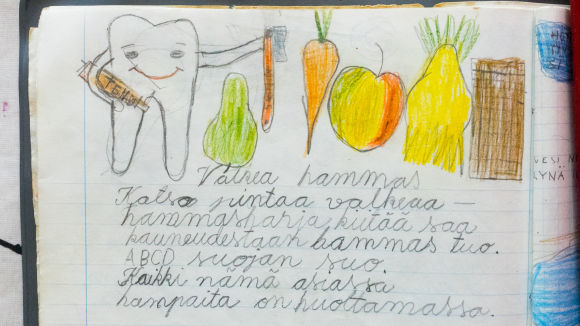 Valkea hammas
Katso pintaa valkeaa –
hammasharja kiitää saa
kauneudestaan hammas tuo.
ABCD suojan suo.
Kaikki nämä asiassa
hampaita on huoltamassa.
VESI